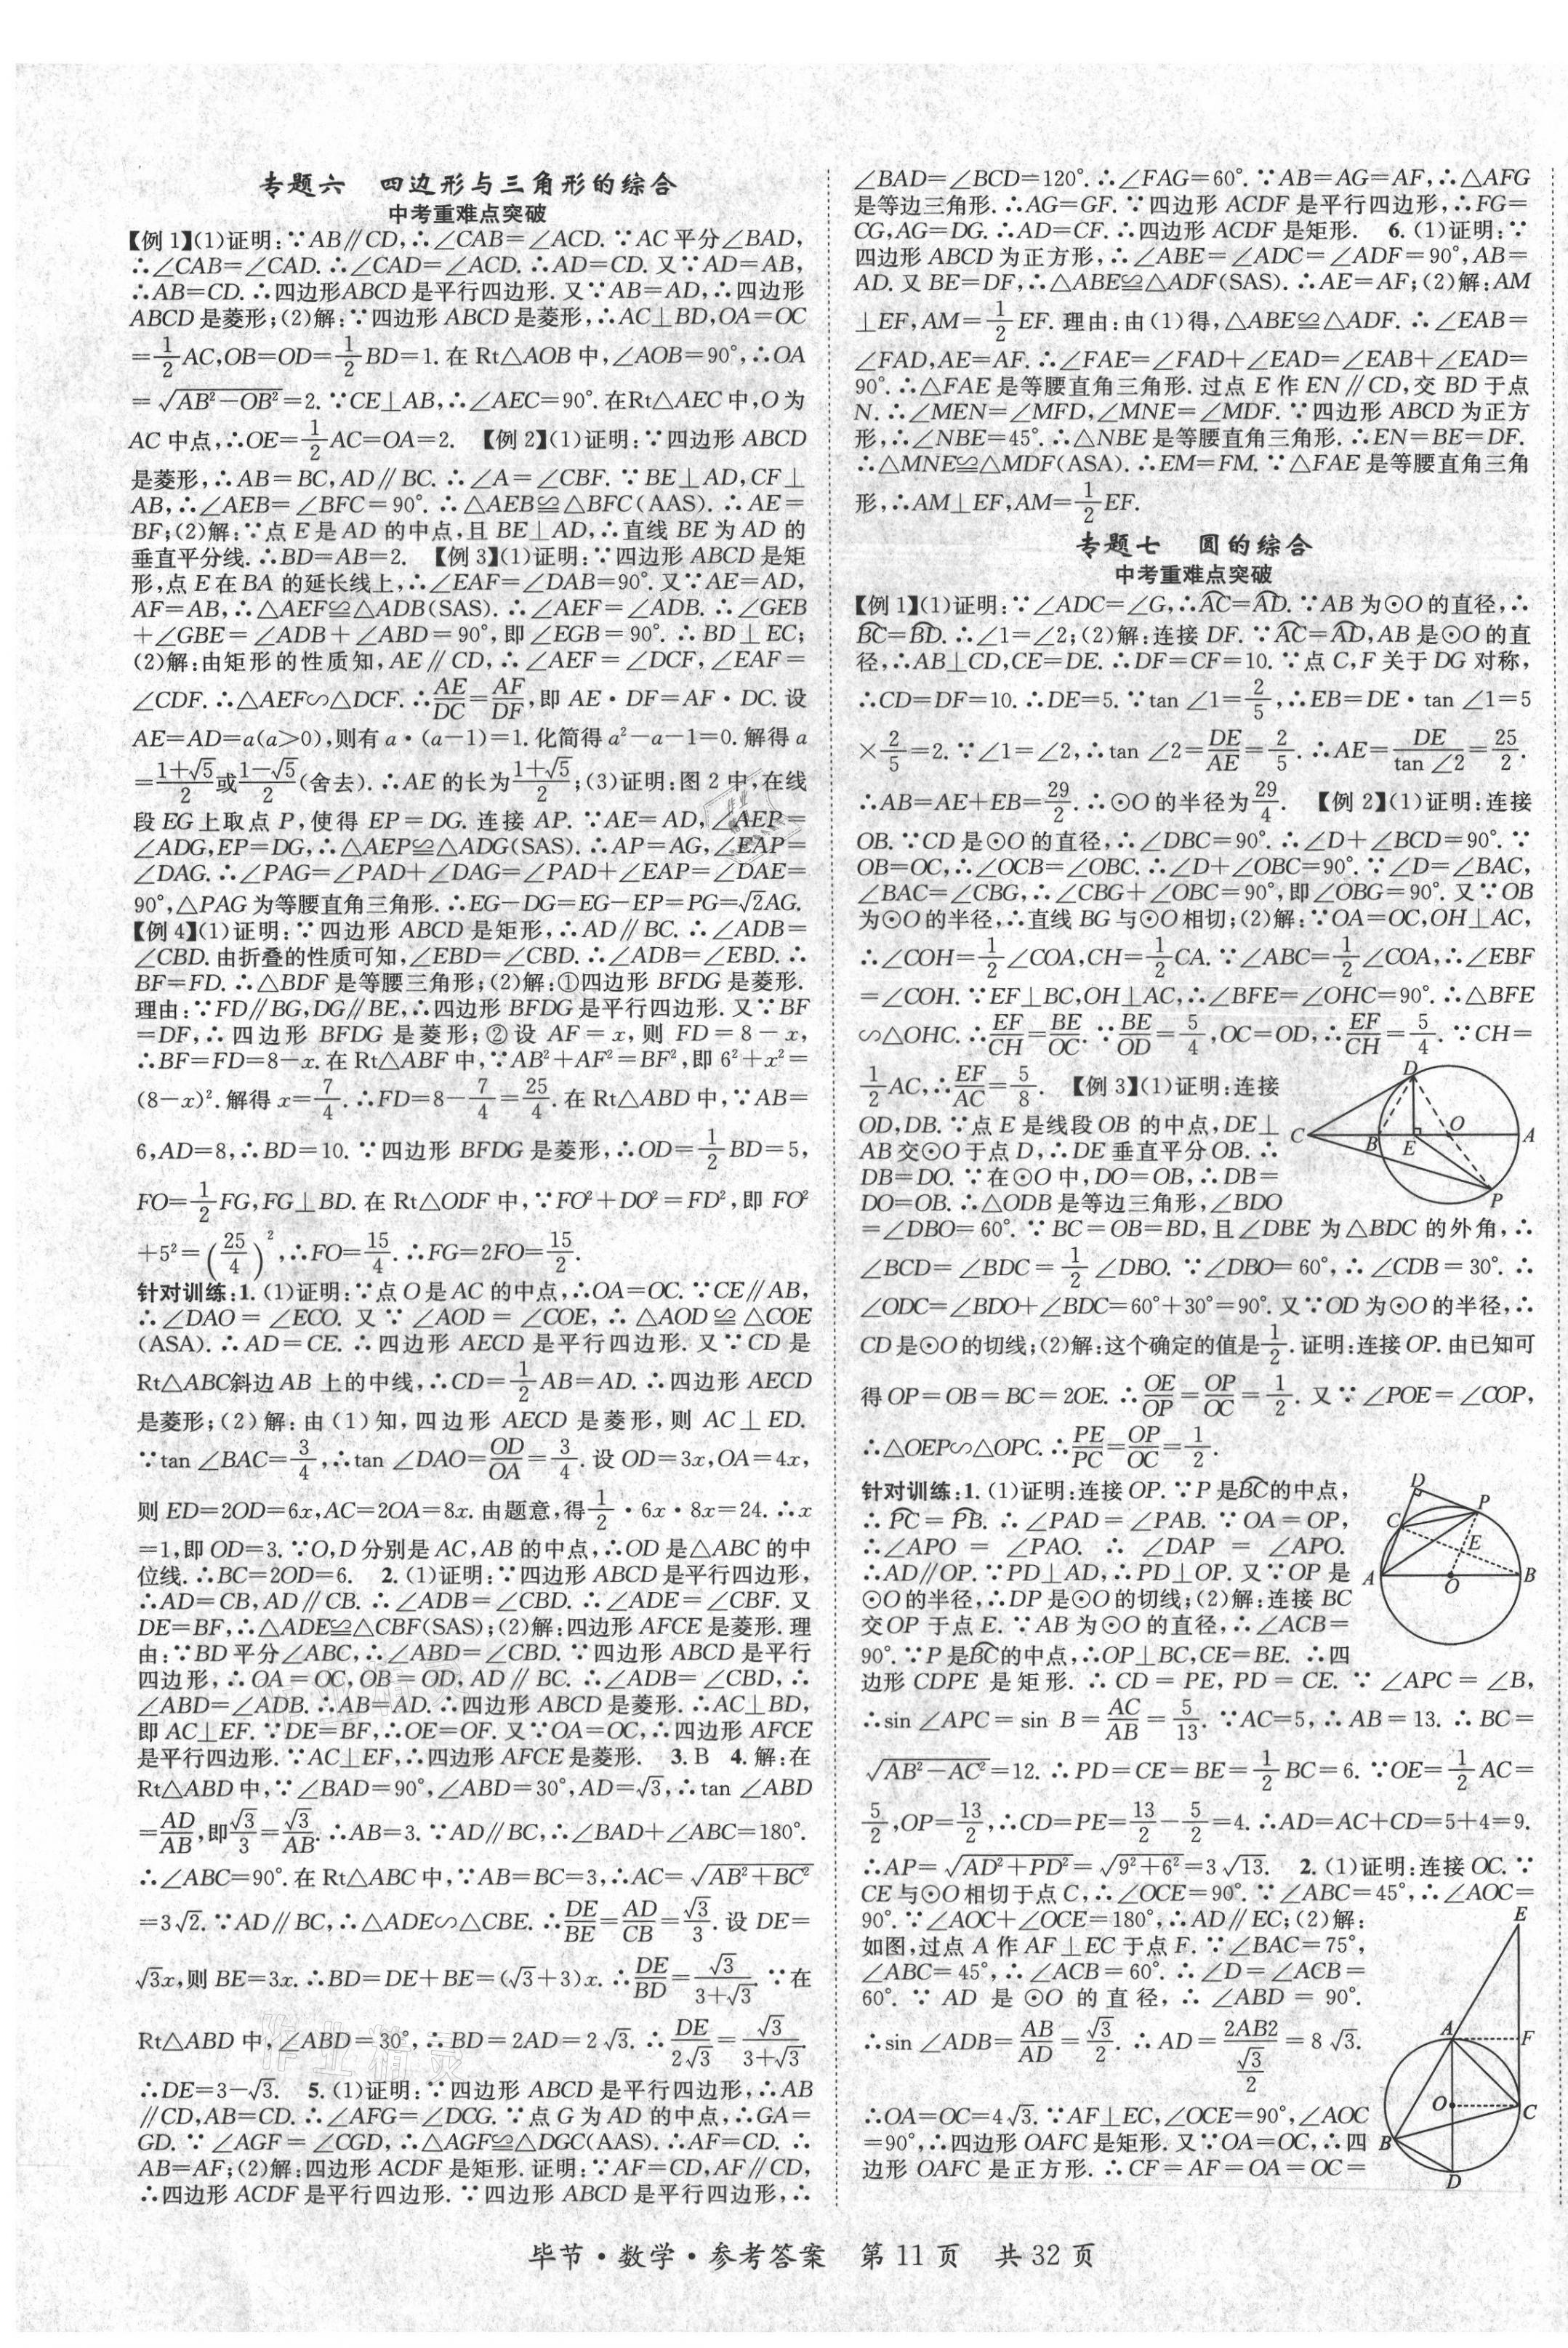 专题六　四边形与三角形的综合
中考重难点突破
【例1】(1)证明:∵AB∥CD,∴∠CAB=∠ACD.∵AC平分∠BAD,
∴∠CAB=∠CAD.∴∠CAD=∠ACD.∴AD=CD.又∵AD=AB,
∴AB=CD.∴四边形ABCD是平行四边形.又∵AB=AD,∴四边形
ABCD是菱形;(2)解:∵四边形ABCD是菱形,∴AC⊥BD,OA=OC
=1/2AC,OB=OD=1/2BD=1.在Rt△AOB中,∠AOB=90°,∴OA
=√(AB²-OB²)=2.∵CE⊥AB,∴∠AEC=90°.在Rt△AEC中,O为
AC中点,∴OE=1/2AC=OA=2.　【例2】(1)证明:∵四边形ABCD
是菱形,∴AB=BC,AD∥BC.∴∠A=∠CBF.∵BE⊥AD,CF⊥
AB,∴∠AEB=∠BFC=90°.∴△AEB≌△BFC(AAS).∴AE=
BF;(2)解:∵点E是AD的中点,且BE⊥AD,∴直线BE为AD的
垂直平分线.∴BD=AB=2.　【例3】(1)证明:∵四边形ABCD是矩
形,点E在BA的延长线上,∴∠EAF=∠DAB=90°.又∵AE=AD,
AF=AB,∴△AEF≌△ADB(SAS).∴∠AEF=∠ADB.∴∠GEB
+∠GBE=∠ADB+∠ABD=90°,即∠EGB=90°.∴BD⊥EC;
(2)解:由矩形的性质知,AE∥CD,∴∠AEF=∠DCF,∠EAF=
∠CDF.∴△AEF∽△DCF.∴AE/DC=AF/DF,即AE·DF=AF·DC.设
AE=AD=a(a>0),则有a·(a-1)=1.化简得a²-a-1=0.解得a
=(1+√5)/2或(1-√5)/2(舍去).∴AE的长为(1+√5)/2;(3)证明:图2中,在线
段EG上取点P,使得EP=DG.连接AP.∵AE=AD,∠AEP=
∠ADG,EP=DG,∴△AEP≌△ADG(SAS).∴AP=AG,∠EAP=
∠DAG.∴∠PAG=∠PAD+∠DAG=∠PAD+∠EAP=∠DAE=
90°,△PAG为等腰直角三角形.∴EG-DG=EG-EP=PG=√2AG.
【例4】(1)证明:∵四边形ABCD是矩形,∴AD∥BC.∴∠ADB=
∠CBD.由折叠的性质可知,∠EBD=∠CBD.∴∠ADB=∠EBD.∴
BF=FD.∴△BDF是等腰三角形;(2)解:①四边形BFDG是菱形.
理由:∵FD∥BG,DG∥BE,∴四边形BFDG是平行四边形.又∵BF
=DF,∴四边形BFDG是菱形;②设AF=x,则FD=8-x,
∴BF=FD=8-x.在Rt△ABF中,∵AB²+AF²=BF²,即6²+x²=
(8-x)².解得x=7/4.∴FD=8-7/4=25/4.在Rt△ABD中,∵AB=
6,AD=8,∴BD=10.∵四边形BFDG是菱形,∴OD=1/2BD=5,
FO=1/2FG,FG⊥BD.在Rt△ODF中,∵FO²+DO²=FD²,即FO²
+5²=(25/4)²,∴FO=15/4.∴FG=2FO=15/2.
针对训练:1.(1)证明:∵点O是AC的中点,∴OA=OC.∵CE∥AB,
∴∠DAO=∠ECO.又∵∠AOD=∠COE,∴△AOD≌△COE
(ASA).∴AD=CE.∴四边形AECD是平行四边形.又∵CD是
Rt△ABC斜边AB上的中线,∴CD=1/2AB=AD.∴四边形AECD
是菱形;(2)解:由(1)知,四边形AECD是菱形,则AC⊥ED.
∵tan∠BAC=3/4,∴tan∠DAO=OD/OA=3/4.设OD=3x,OA=4x,
则ED=2OD=6x,AC=2OA=8x.由题意,得1/2·6x·8x=24.∴x
=1,即OD=3.∵O,D分别是AC,AB的中点,∴OD是△ABC的中
位线.∴BC=2OD=6.　2.(1)证明:∵四边形ABCD是平行四边形,
∴AD=CB,AD∥CB.∴∠ADB=∠CBD.∴∠ADE=∠CBF.又
DE=BF,∴△ADE≌△CBF(SAS);(2)解:四边形AFCE是菱形.理
由:∵BD平分∠ABC,∴∠ABD=∠CBD.∵四边形ABCD是平行
四边形,∴OA=OC,OB=OD,AD∥BC.∴∠ADB=∠CBD,∴
∠ABD=∠ADB.∴AB=AD.∴四边形ABCD是菱形.∴AC⊥BD,
即AC⊥EF.∵DE=BF,∴OE=OF.又∵OA=OC,∴四边形AFCE
是平行四边形.∵AC⊥EF,∴四边形AFCE是菱形.　3.B　4.解:在
Rt△ABD中,∵∠BAD=90°,∠ABD=30°,AD=√3,∴tan∠ABD
=AD/AB,即√3/3=√3/AB.∴AB=3.∵AD∥BC,∴∠BAD+∠ABC=180°.
∴∠ABC=90°.在Rt△ABC中,∵AB=BC=3,∴AC=√(AB²+BC²)
=3√2.∵AD∥BC,∴△ADE∽△CBE.∴DE/BE=AD/CB=√3/3.设DE=
√3x,则BE=3x.∴BD=DE+BE=(√3+3)x.∴DE/BD=√3/(3+√3).∵在
Rt△ABD中,∠ABD=30°,∴BD=2AD=2√3.∴DE/(2√3)=√3/(3+√3).
∴DE=3-√3.　5.(1)证明:∵四边形ABCD是平行四边形,∴AB
∥CD,AB=CD.∴∠AFG=∠DCG.∵点G为AD的中点,∴GA=
GD.∵∠AGF=∠CGD,∴△AGF≌△DGC(AAS).∴AF=CD.∴
AB=AF;(2)解:四边形ACDF是矩形.证明:∵AF=CD,AF∥CD,
∴四边形ACDF是平行四边形.∵四边形ABCD是平行四边形,∴
∠BAD=∠BCD=120°.∴∠FAG=60°.∵AB=AG=AF,∴△AFG
是等边三角形.∴AG=GF.∵四边形ACDF是平行四边形,∴FG=
CG,AG=DG.∴AD=CF.∴四边形ACDF是矩形.　6.(1)证明:∵
四边形ABCD为正方形,∴∠ABE=∠ADC=∠ADF=90°,AB=
AD.又BE=DF,∴△ABE≌△ADF(SAS).∴AE=AF;(2)解:AM
⊥EF,AM=1/2EF.理由:由(1)得,△ABE≌△ADF.∴∠EAB=
∠FAD,AE=AF.∴∠FAE=∠FAD+∠EAD=∠EAB+∠EAD=
90°.∴△FAE是等腰直角三角形.过点E作EN∥CD,交BD于点
N.∴∠MEN=∠MFD,∠MNE=∠MDF.∵四边形ABCD为正方
形,∴∠NBE=45°.∴△NBE是等腰直角三角形.∴EN=BE=DF.
∴△MNE≌△MDF(ASA).∴EM=FM.∵△FAE是等腰直角三角
形,∴AM⊥EF,AM=1/2EF.
专题七　圆的综合
中考重难点突破
【例1】(1)证明:∵∠ADC=∠G,∴A͡C=A͡D.∵AB为⊙O的直径,∴
B͡C=B͡D.∴∠1=∠2;(2)解:连接DF.∵A͡C=A͡D,AB是⊙O的直
径,∴AB⊥CD,CE=DE.∴DF=CF=10.∵点C,F关于DG对称,
∴CD=DF=10.∴DE=5.∵tan∠1=2/5,∴EB=DE·tan∠1=5
×2/5=2.∵∠1=∠2,∴tan∠2=DE/AE=2/5.∴AE=DE/tan∠2=25/2.
∴AB=AE+EB=29/2.∴⊙O的半径为29/4.　【例2】(1)证明:连接
OB.∵CD是⊙O的直径,∴∠DBC=90°.∴∠D+∠BCD=90°.∵
OB=OC,∴∠OCB=∠OBC.∴∠D+∠OBC=90°.∵∠D=∠BAC,
∠BAC=∠CBG,∴∠CBG+∠OBC=90°,即∠OBG=90°.又∵OB
为⊙O的半径,∴直线BG与⊙O相切;(2)解:∵OA=OC,OH⊥AC,
∴∠COH=1/2∠COA,CH=1/2CA.∵∠ABC=1/2∠COA,∴∠EBF
=∠COH.∵EF⊥BC,OH⊥AC,∴∠BFE=∠OHC=90°.∴△BFE
∽△OHC.∴EF/CH=BE/OC.∵BE/OD=5/4,OC=OD,∴EF/CH=5/4.∵CH=
1/2AC,∴EF/AC=5/8.　【例3】(1)证明:连接
OD,DB.∵点E是线段OB的中点,DE⊥
AB交⊙O于点D,∴DE垂直平分OB.∴
DB=DO.∵在⊙O中,DO=OB,∴DB=
DO=OB.∴△ODB是等边三角形,∠BDO
=∠DBO=60°.∵BC=OB=BD,且∠DBE为△BDC的外角,∴
∠BCD=∠BDC=1/2∠DBO.∵∠DBO=60°,∴∠CDB=30°.∴
∠ODC=∠BDO+∠BDC=60°+30°=90°.又∵OD为⊙O的半径,∴
CD是⊙O的切线;(2)解:这个确定的值是1/2.证明:连接OP.由已知可
得OP=OB=BC=2OE.∴OE/OP=OP/OC=1/2.又∵∠POE=∠COP,
∴△OEP∽△OPC.∴PE/PC=OP/OC=1/2.
D
C
B
E
O
A
P
针对训练:1.(1)证明:连接OP.∵P是B͡C的中点,
∴P͡C=P͡B.∴∠PAD=∠PAB.∵OA=OP,
∴∠APO=∠PAO.∴∠DAP=∠APO.
∴AD∥OP.∵PD⊥AD,∴PD⊥OP.又∵OP是
⊙O的半径,∴DP是⊙O的切线;(2)解:连接BC
交OP于点E.∵AB为⊙O的直径,∴∠ACB=
90°.∵P是B͡C的中点,∴OP⊥BC,CE=BE.∴四
边形CDPE是矩形.∴CD=PE,PD=CE.∵∠APC=∠B,
∴sin∠APC=sin B=AC/AB=5/13.∵AC=5,∴AB=13.∴BC=
√(AB²-AC²)=12.∴PD=CE=BE=1/2BC=6.∵OE=1/2AC=
5/2,OP=13/2,∴CD=PE=13/2-5/2=4.∴AD=AC+CD=5+4=9.
∴AP=√(AD²+PD²)=√(9²+6²)=3√13.　2.(1)证明:连接OC.∵
D
P
C
E
A
O
B
CE与⊙O相切于点C,∴∠OCE=90°.∵∠ABC=45°,∴∠AOC=
90°.∵∠AOC+∠OCE=180°,∴AD∥EC;(2)解:
如图,过点A作AF⊥EC于点F.∵∠BAC=75°,
∠ABC=45°,∴∠ACB=60°.∴∠D=∠ACB=
60°.∵AD是⊙O的直径,∴∠ABD=90°.
∴sin∠ADB=AB/AD=√3/2.∴AD=2AB2/(√3/2)=8√3.
∴OA=OC=4√3.∵AF⊥EC,∠OCE=90°,∠AOC
=90°,∴四边形OAFC是矩形.又∵OA=OC,∴四
边形OAFC是正方形.∴CF=AF=OA=OC=
E
A
F
O
C
B
D
毕节·数学·参考答案　第11页　共32页